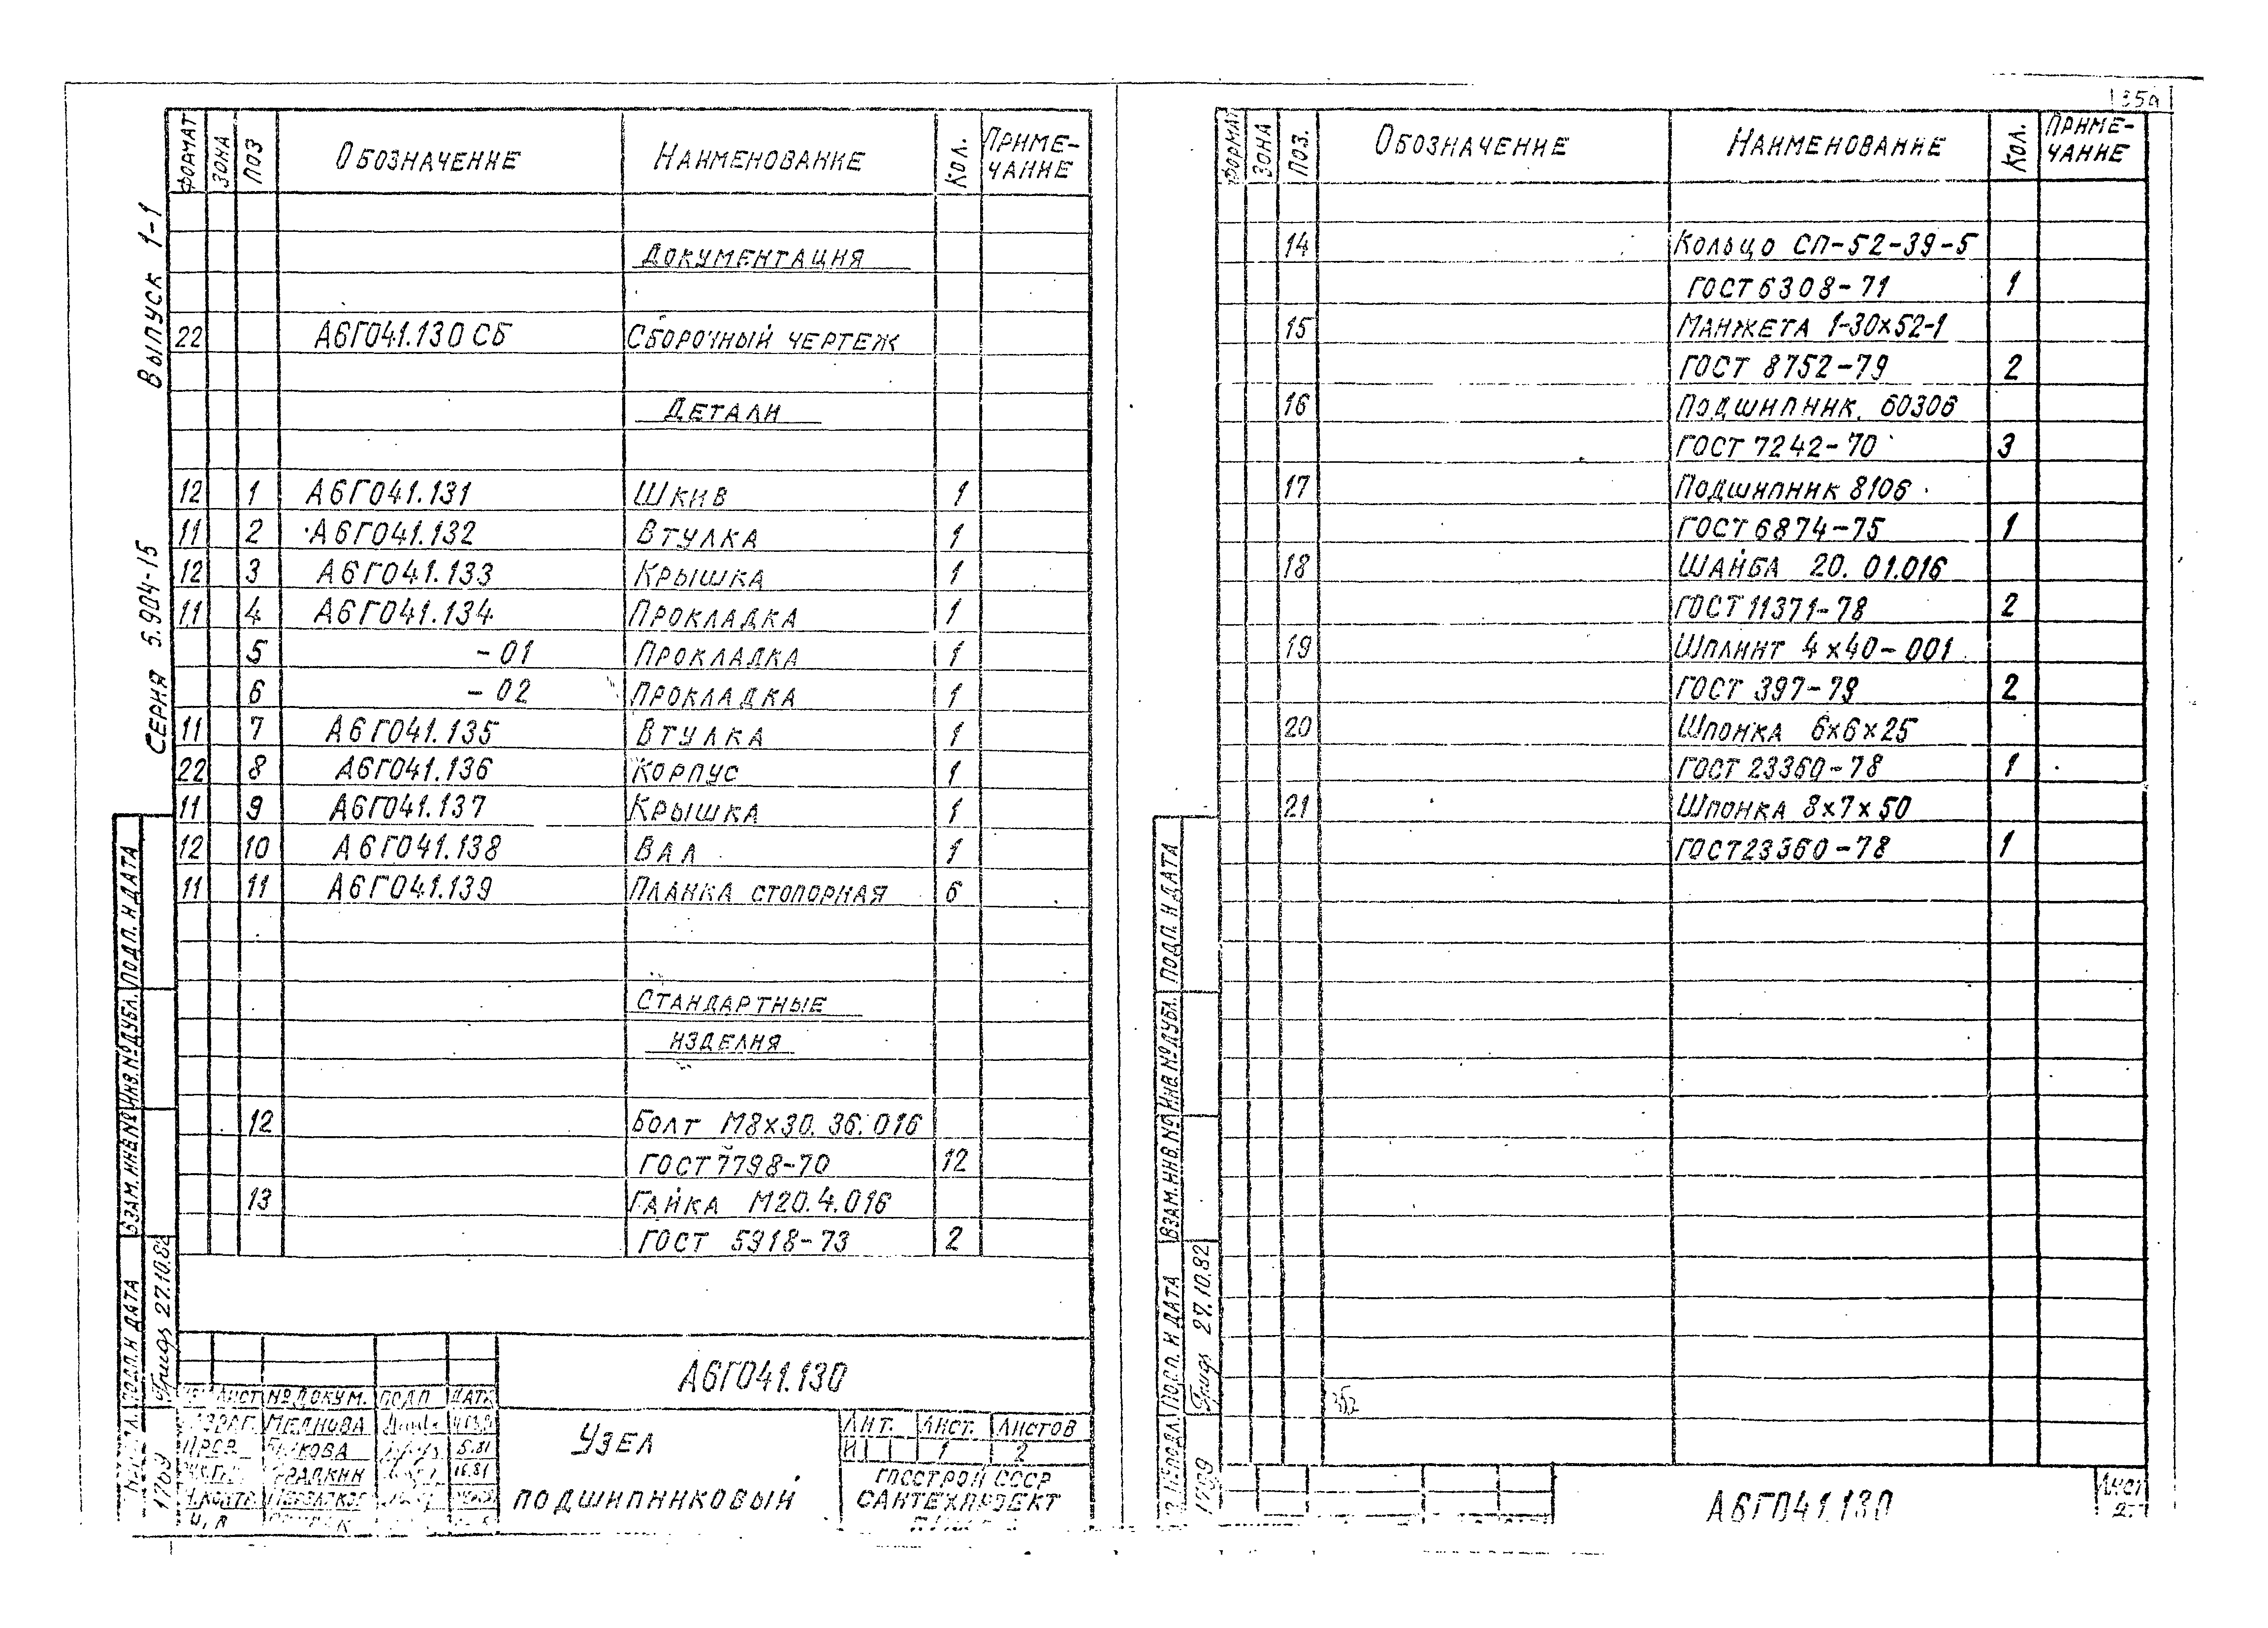 Серия 5.904-15 Выпуск 1-1
Формат Зона Поз Обозначение Наименование Кол. Приме-чание
Документация
22 А6Г041.130 СБ Сборочный чертеж
Детали
12 1 А6Г041.131 Шкив 1
11 2 А6Г041.132 Втулка 1
12 3 А6Г041.133 Крышка 1
11 4 А6Г041.134 Прокладка 1
5 -01 Прокладка 1
6 -02 Прокладка 1
11 7 А6Г041.135 Втулка 1
22 8 А6Г041.136 Корпус 1
11 9 А6Г041.137 Крышка 1
12 10 А6Г041.138 Вал 1
11 11 А6Г041.139 Планка стопорная 6
Стандартные
изделия
12 Болт М8х30.36.016
ГОСТ 7798-70 12
13 Гайка М20.4.016
ГОСТ 5918-73 2
Подп. и дата
Инв.№ дубл.
Взам.инв№
Подп. и дата 27.10.82
А6Г041.130
Лист № докум. Подп Дата
Меднова
Пров.
Узел
подшипниковый
Лит. Лист. Листов
И 1 2
Госстрой СССР
Сантехпроект
35а
Формат Зона Поз. Обозначение Наименование Кол. Приме-чание
14 Кольцо СП-52-39-5
ГОСТ 6308-71 1
15 Манжета 1-30х52-1
ГОСТ 8752-79 2
16 Подшипник 60306
ГОСТ 7242-70 3
17 Подшипник 8106
ГОСТ 6874-75 1
18 Шайба 20.01.016
ГОСТ 11371-78 2
19 Шплинт 4х40-001
ГОСТ 397-79 2
20 Шпонка 6х6х25
ГОСТ 23360-78 1
21 Шпонка 8х7х50
ГОСТ 23360-78 1
Подп. и дата
Инв № дубл.
Взам.инв.№
Подп. и дата 27.10.82
А6Г041.130
Лист
2